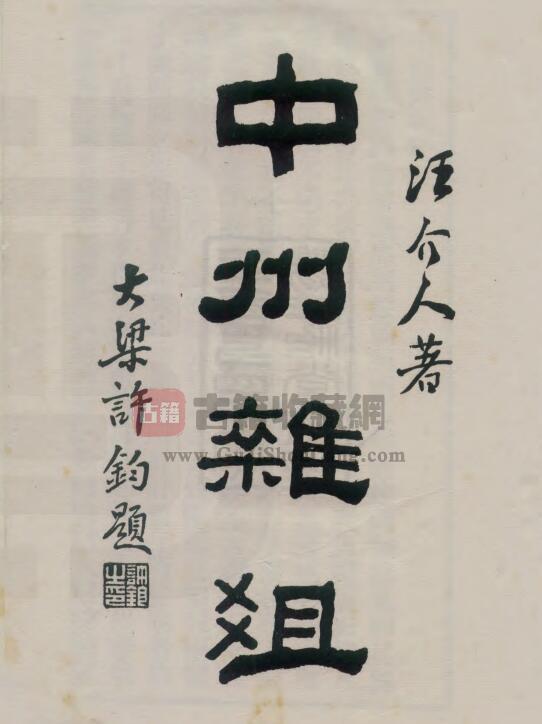 汪介人著
中州雜俎
大梁許鈞題
許鈞之印
古籍
古籍收藏網
www.GujiShouCang.com